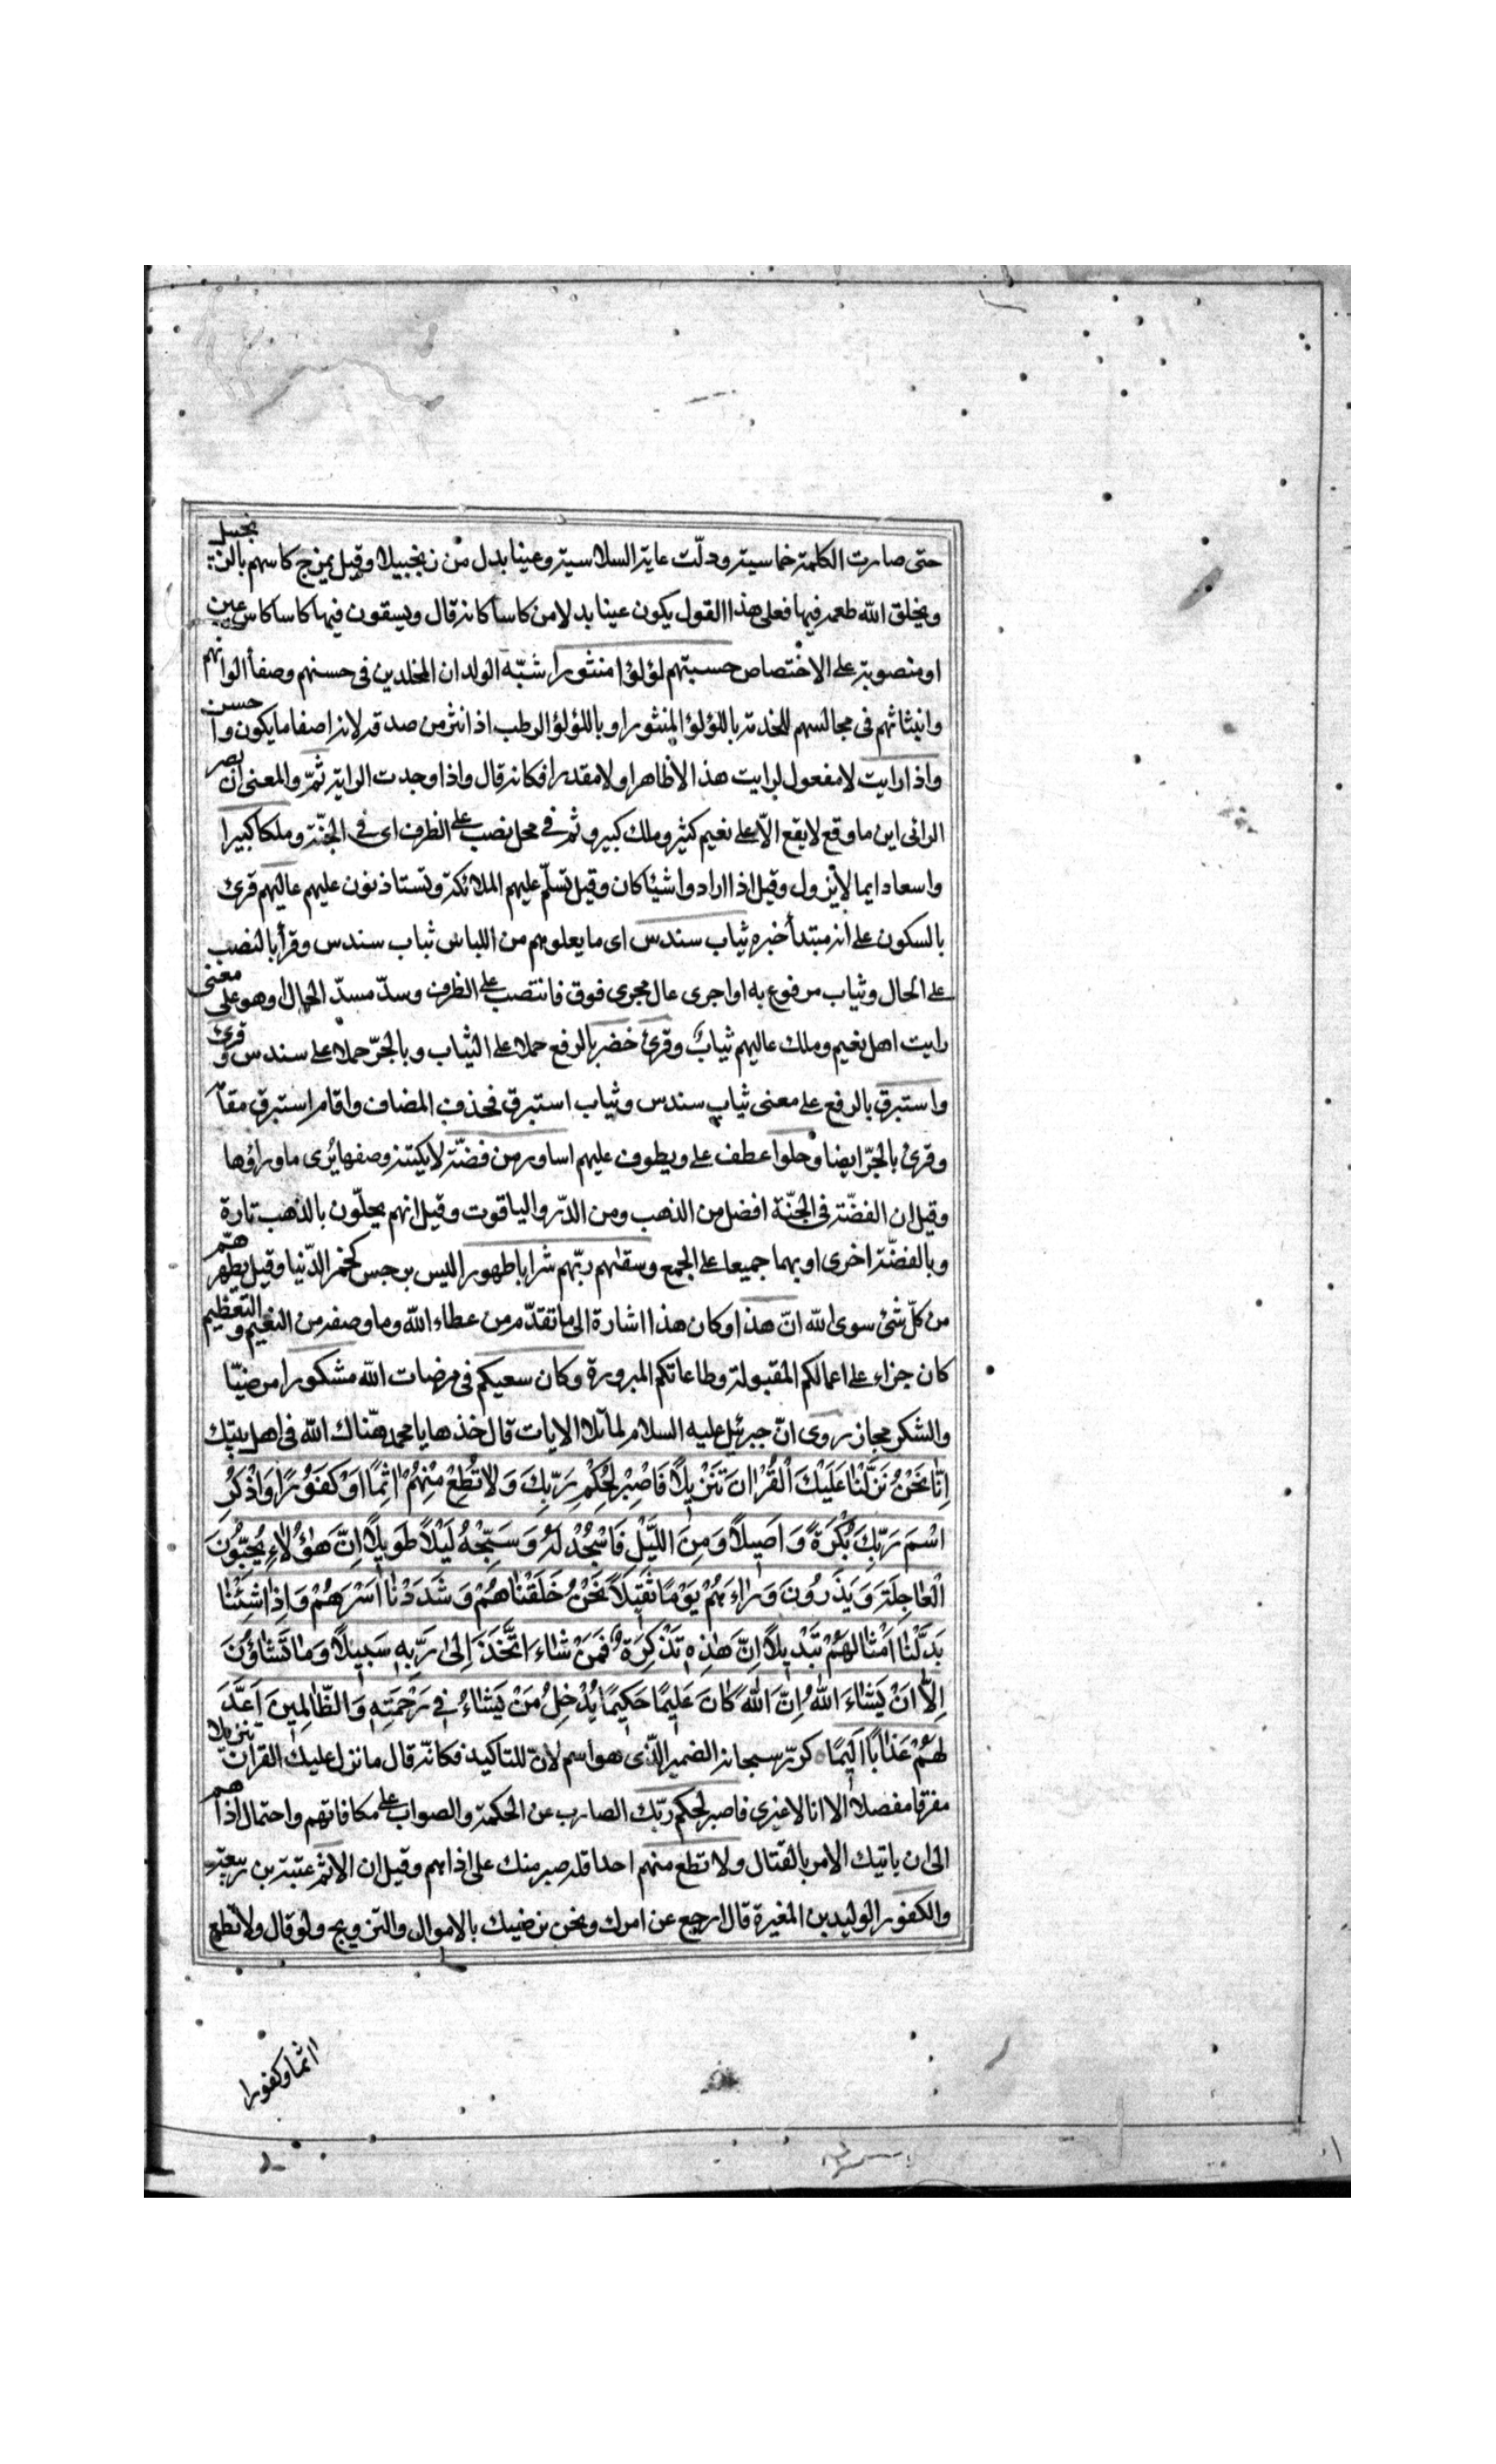 حتى صارت الكلمة خماسية ودلّت على غاية السلاسة وعينا بدل من زنجبيلا وقيل يمزج كاسهم بالزنجبيل
ويخلق الله طعمه فيها فعلى هذا القول يكون عينا بدلا من كاسا كانه قال ويسقون فيها كاسا كاس عين
او منصوبة على الاختصاص حسبتهم لؤلؤا منثورا شبّه الولدان المخلدين فى حسنهم وصفأ الوانهم
وانبثاثهم فى مجالسهم للخدمة باللؤلؤ المنثور او باللؤلؤ الرطب اذا نثر من صدفه لانه اصفا ما يكون واحسن
واذا رايت لا مفعول لرايت هذا لا ظاهرا ولا مقدرا فكانه قال واذا وجدت الراية ثمّ والمعنى ان بصر
الرائى اين ما وقع لا يقع الّا على نعيم كثير وملك كبير وثم فى محل نصب على الظرف اى فى الجنّة وملكا كبيرا
واسعا دايما لا يزول وقيل اذا ارادوا شيئا كان وقيل تسلّم عليهم الملائكة وتستاذنون عليهم عاليهم قرئ
بالسكون على انه مبتدأ خبره ثياب سندس اى ما يعلوهم من اللباس ثياب سندس وقرأ بالنصب
على الحال وثياب مرفوع به او اجرى عال مجرى فوق فانتصب على الظرف وسدّ مسدّ الحال وهو على معنى
رايت اهل نعيم وملك عاليهم ثياب وقرئ خضر بالرفع حملا على الثياب وبالجرّ حملا على سندس وقرئ
واستبرق بالرفع على معنى ثياب سندس وثياب استبرق فحذف المضاف واقام استبرق مقا
وقرئ بالجرّ ايضا وحلوا عطف على ويطوف عليهم اساور من فضّة وصفها يُرى ما وراؤها
وقيل ان الفضّة فى الجنّة افضل من الذهب ومن الدّر والياقوت وقيل انهم يحلّون بالذهب تارة
وبالفضّة اخرى او بهما جميعا على الجمع وسقيهم ربّهم شرابا طهورا ليس برجس كخمر الدّنيا وقيل يطهرهم
من كلّ شئ سوى الله انّ هذا وكان هذا اشارة الى ما تقدّم من عطاء الله وما وصفه من النعيم والتعظيم
كان جزاء على اعمالكم المقبولة وطاعاتكم المبرورة وكان سعيكم فى مرضات الله مشكورا مرضيّا
والشكر مجاز روى انّ جبرئيل عليه السلام لما تلا الايات قال خذها يا محمد هنّاك الله فى اهل بيتك
اِنّا نَحْنُ نَزَّلْنا عَلَيْكَ الْقُرْانَ تَنْزيلاً فَاصْبِرْ لِحُكْمِ رَبِّكَ وَلا تُطِعْ مِنْهُمْ اثِمًا اَوْ كَفُورًا وَاذْكُرِ
اسْمَ رَبِّكَ بُكْرَةً وَاَصيلاً وَمِنَ اللَّيْلِ فَاسْجُدْ لَهُ وَسَبِّحْهُ لَيْلاً طَويلاً اِنَّ هؤُلاءِ يُحِبُّونَ
الْعاجِلَةَ وَيَذَرُونَ وَراءَهُمْ يَوْمًا ثَقيلاً نَحْنُ خَلَقْناهُمْ وَشَدَدْنا اَسْرَهُمْ وَاِذا شِئْنا
بَدَّلْنا اَمْثالَهُمْ تَبْديلاً اِنَّ هذِهِ تَذْكِرَةٌ فَمَنْ شاءَ اتَّخَذَ اِلى رَبِّهِ سَبيلاً وَما تَشاؤُنَ
اِلاّ اَنْ يَشاءَ اللهُ اِنَّ اللهَ كانَ عَليمًا حَكيمًا يُدْخِلُ مَنْ يَشاءُ فى رَحْمَتِهِ وَالظّالِمينَ اَعَدَّ
لَهُمْ عَذابًا اَليمًا كرّر سبحانه الضمير الّذى هو اسم لانّ للتاكيد فكانّه قال ما نزل عليك القران تنزيلا
مفرقا مفصلا الا انا لا غيرى فاصبر لحكم ربّك الصادر عن الحكمة والصواب على مكافاتهم واحتمال اذاهم
الى ان ياتيك الامر بالقتال ولا تطع منهم احدا قله صبر منك على اذاهم وقيل ان الاثم عتبة بن ربيعة
والكفور الوليد بن المغيرة قال ارجع عن امرك ونحن نرضيك بالاموال والتزويج ولو قال ولا تطع
اثما وكفورا